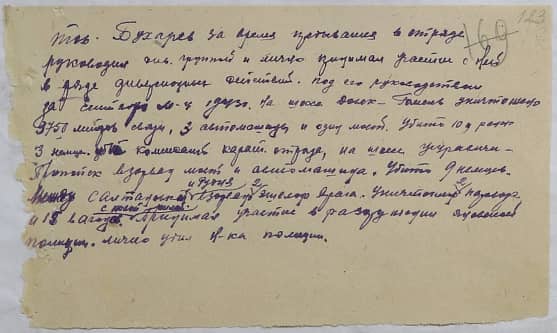 123
169
тов. Бухарев за время пребывания в отряде
руководил див. группой и лично принимал участие с ней
в ряде диверсионных действий. под его руководством
за сентябрь м-ц 1942г. на шоссе - Гомель уничтожено
9750 метров связи, 3 автомашины и один мост. Убито 10
3 немца, комендант карат. отряда, на шоссе
взорвал мост и автомашина. Убито 9 немцев.
между взорвал 2 эшелон врага. Уничтожено паровоз
и 18 вагонов Принимал участие в разоружении
полиции. лично убил н-ка полиции.